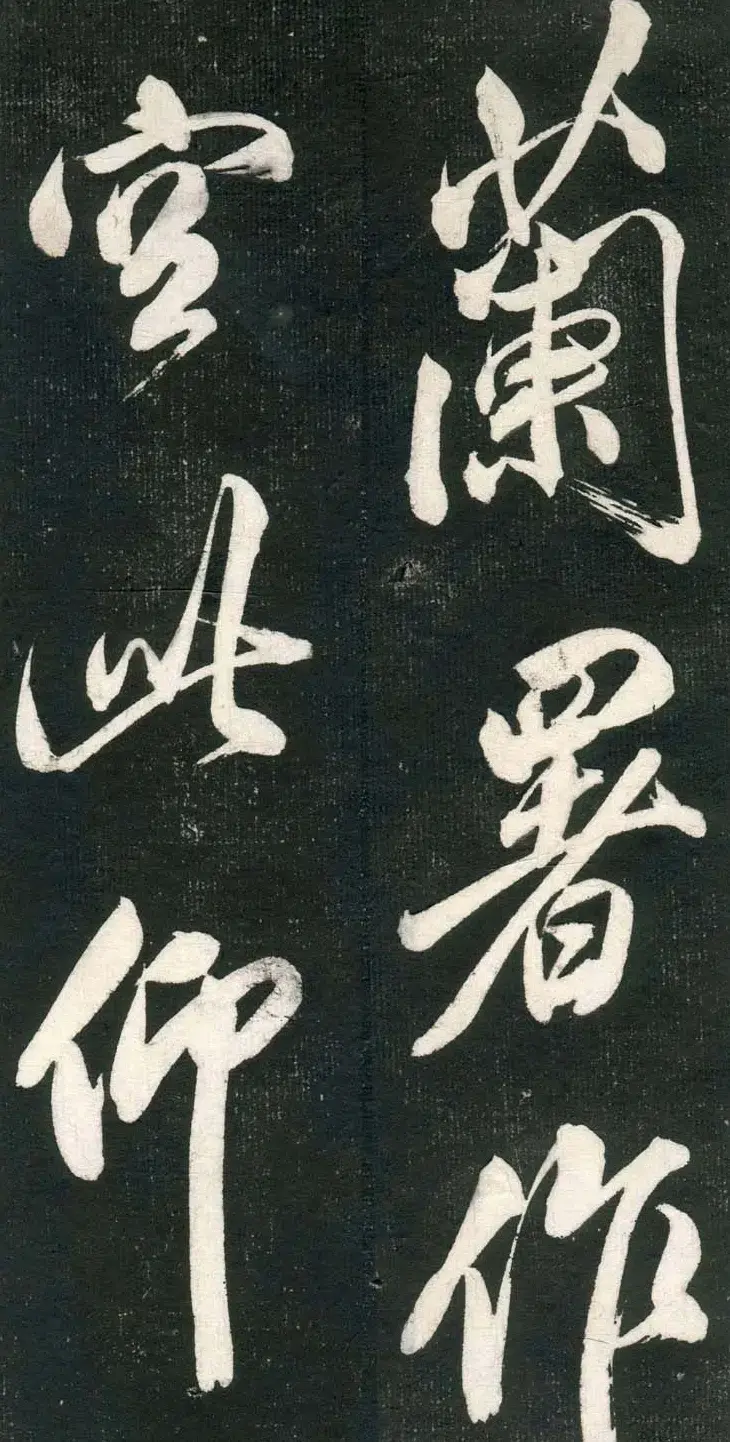 蘭署作
宮此仰